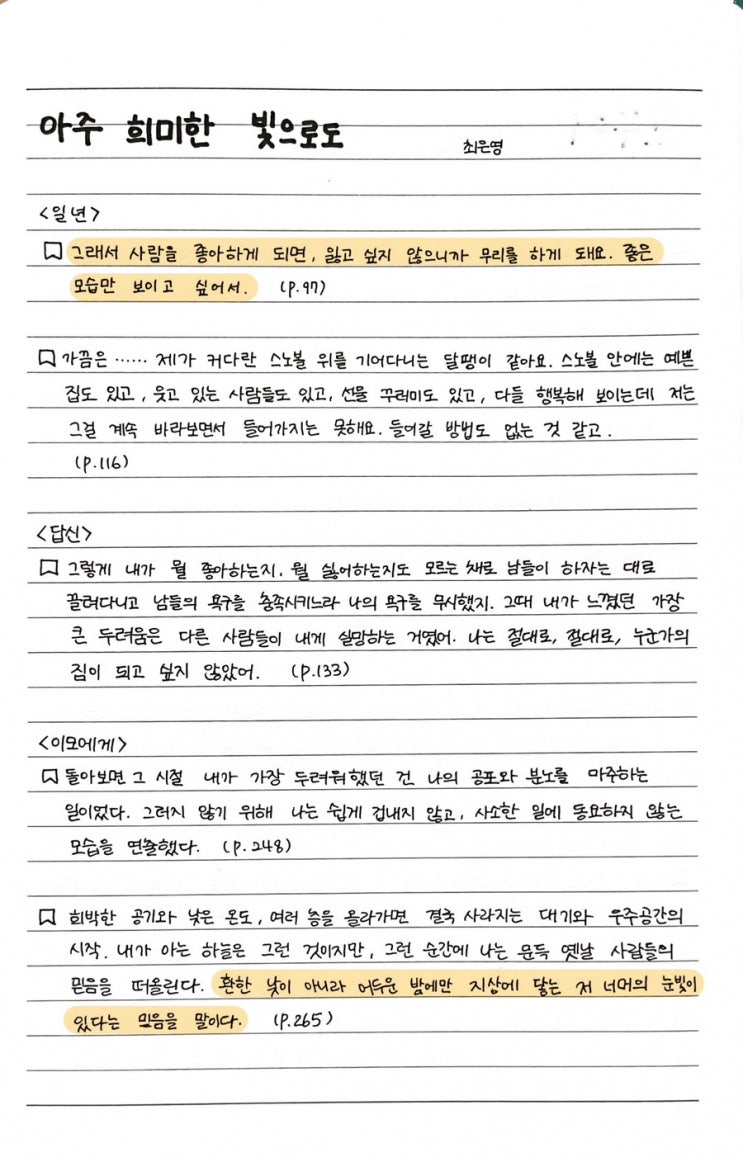 아주 희미한 빛으로도
최은영
<일년>
그래서 사람을 좋아하게 되면, 잃고 싶지 않으니까 무리를 하게 돼요. 좋은
모습만 보이고 싶어서. (P.97)
가끔은 …… 제가 커다란 스노볼 위를 기어다니는 달팽이 같아요. 스노볼 안에는 예쁜
집도 있고, 웃고 있는 사람들도 있고, 선물 꾸러미도 있고, 다들 행복해 보이는데 저는
그걸 계속 바라보면서 들어가지는 못해요. 들어갈 방법도 없는 것 같고.
(P.116)
<답신>
그렇게 내가 뭘 좋아하는지. 뭘 싫어하는지도 모르는 채로 남들이 하자는 대로
끌려다니고 남들의 욕구를 충족시키느라 나의 욕구를 무시했지. 그때 내가 느꼈던 가장
큰 두려움은 다른 사람들이 내게 실망하는 거였어. 나는 절대로, 절대로, 누군가의
짐이 되고 싶지 않았어. (P.133)
<이모에게>
돌아보면 그 시절 내가 가장 두려워했던 건 나의 공포와 분노를 마주하는
일이었다. 그러지 않기 위해 나는 쉽게 겁내지 않고, 사소한 일에 동요하지 않는
모습을 연출했다. (P.248)
희박한 공기와 낮은 온도, 여러 층을 올라가면 결국 사라지는 대기와 우주공간의
시작. 내가 아는 하늘은 그런 것이지만, 그런 순간에 나는 문득 옛날 사람들의
믿음을 떠올린다. 환한 낮이 아니라 어두운 밤에만 지상에 닿는 저 너머의 눈빛이
있다는 믿음을 말이다. (P.265)